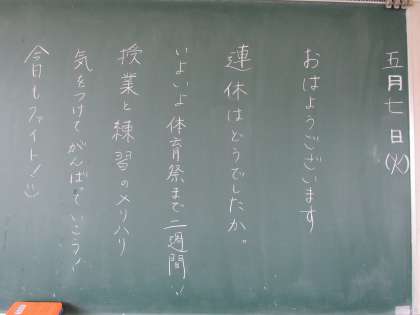 五月七日(火)
おはようございます
連休はどうでしたか。
いよいよ体育祭まで二週間!!
授業と練習のメリハリ
気をつけてがんばっていこう!
今日もファイト!:)